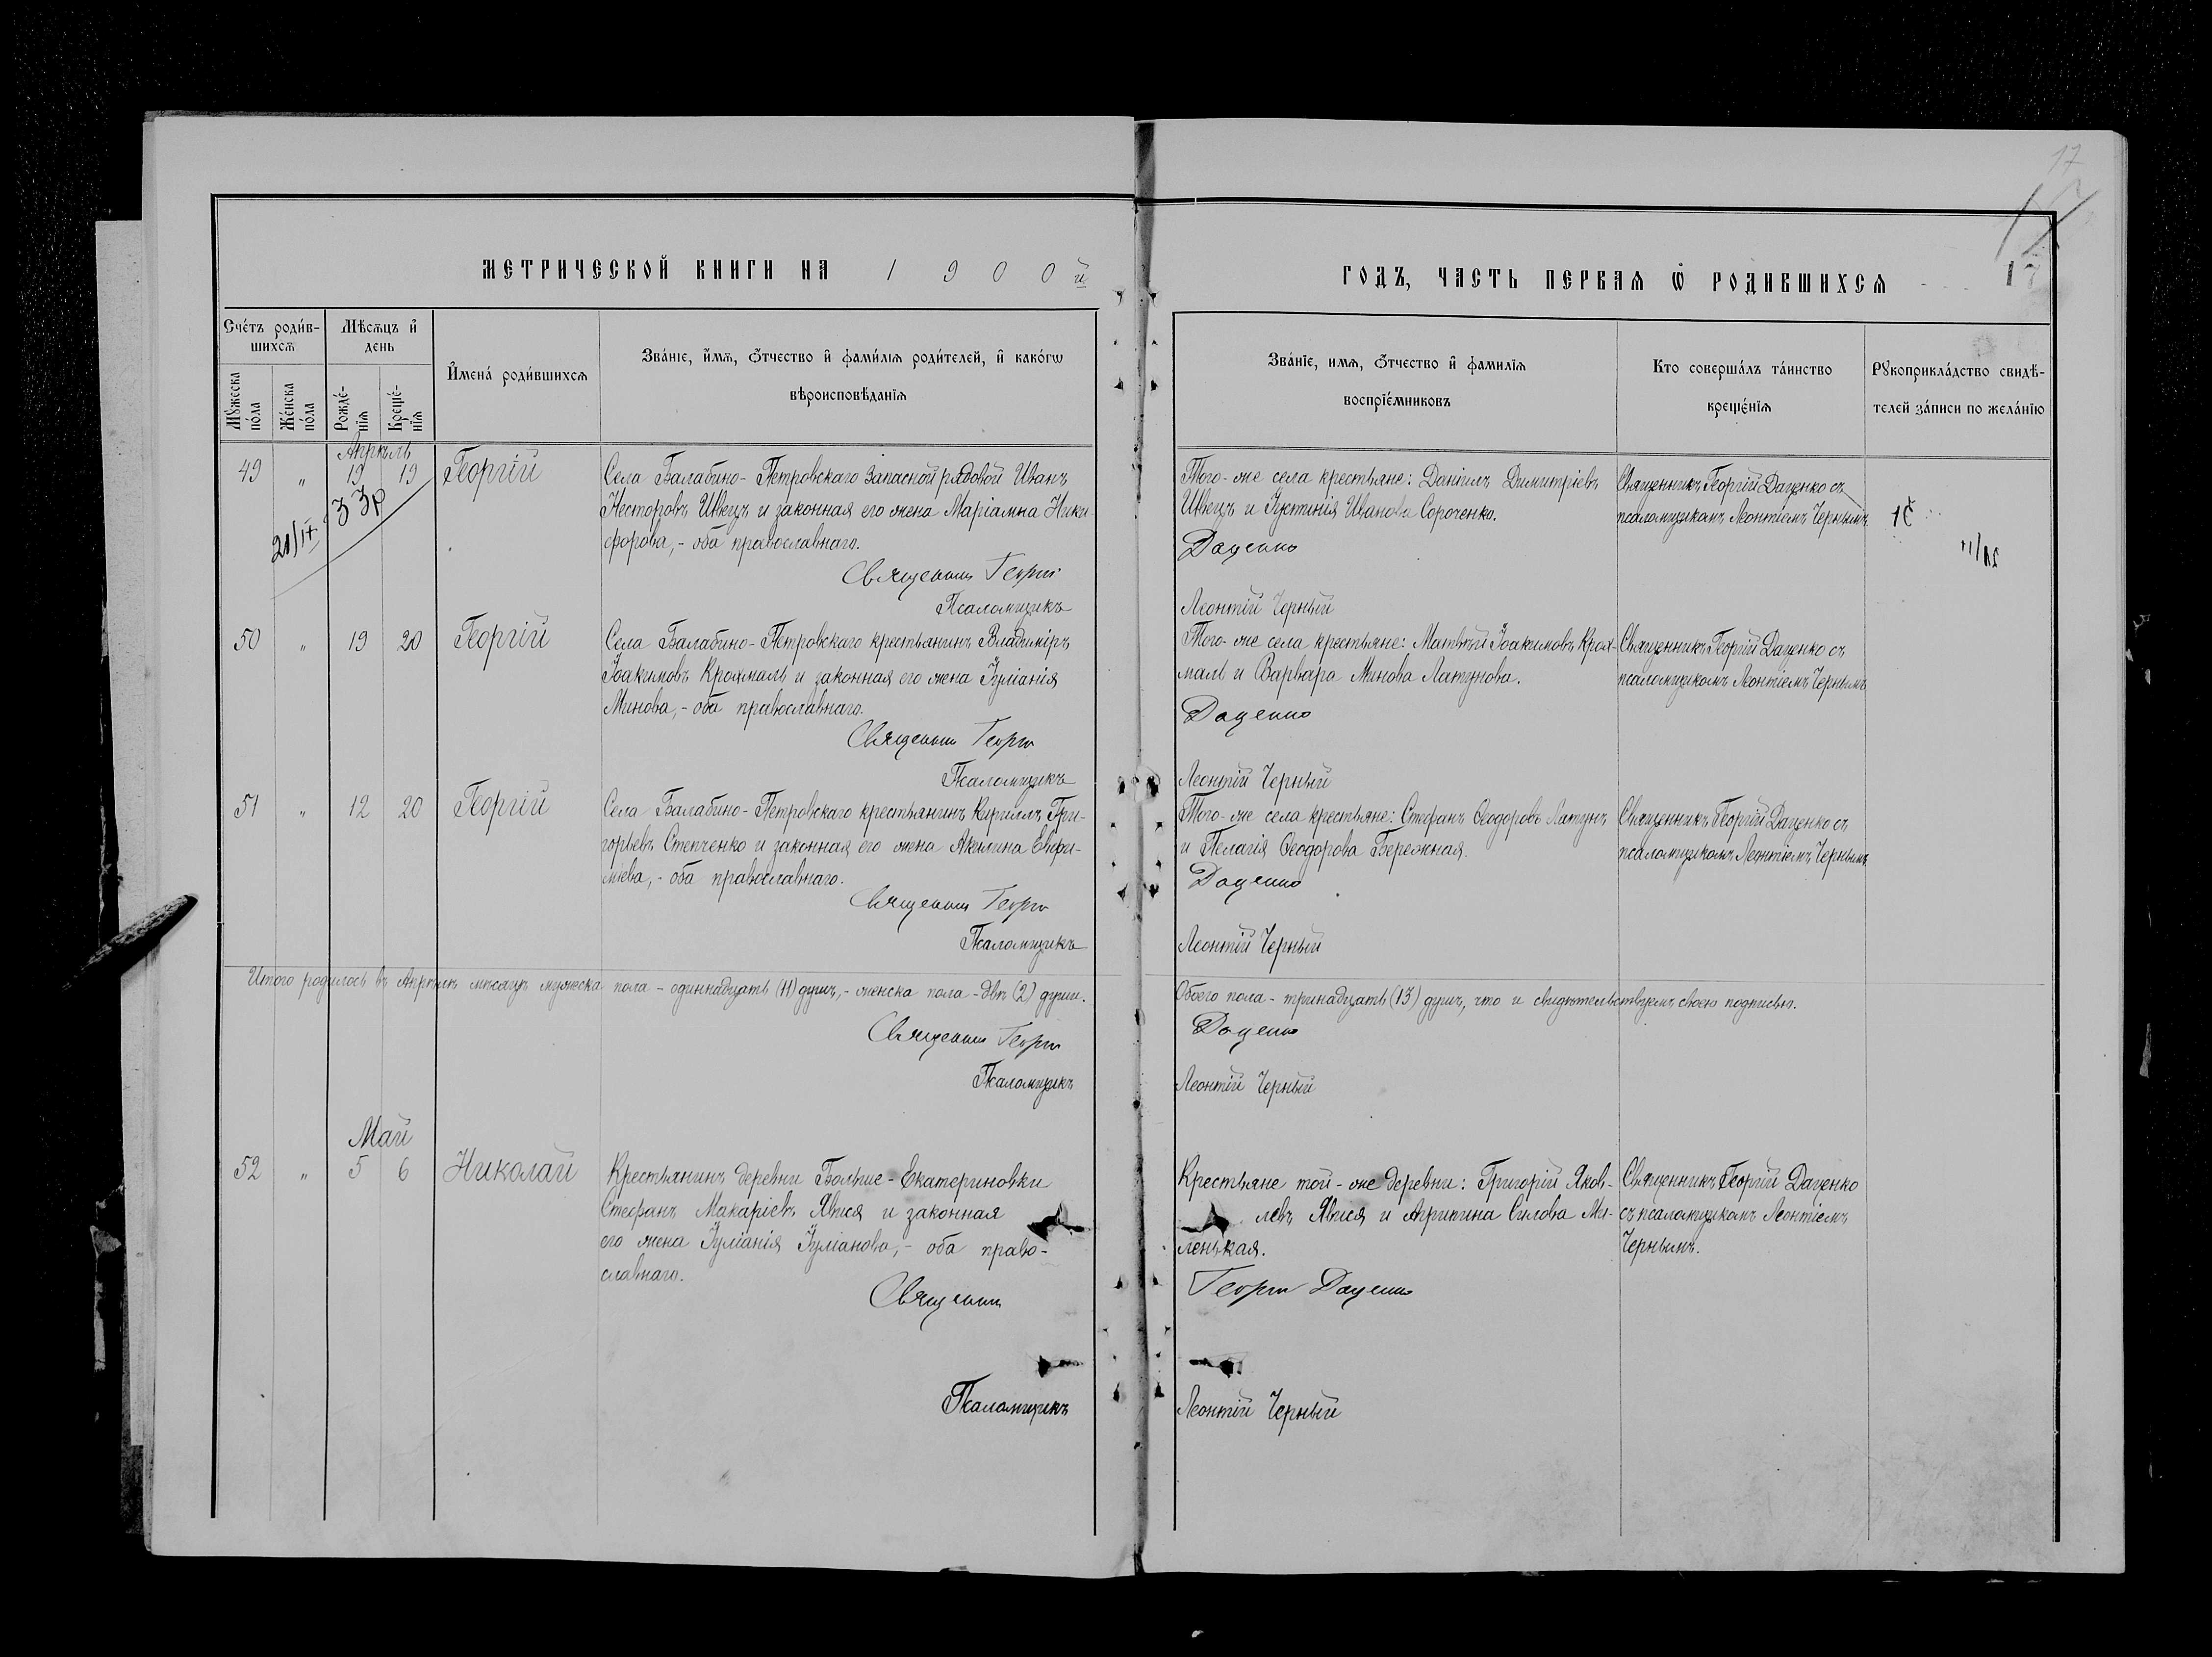 17
МЕТРИЧЕСКОЙ КНИГИ НА 1900й
ГОДЪ, ЧАСТЬ ПЕРВАЯ Ѿ РОДИВШИХСЯ 17
Счетъ родив-
шихся
Мѣсяцъ и
день
Мужеска
пола
Женска
пола
Рожде-
нія
Креще-
нія
Имена родившихся
Званіе, имя, отчество и фамилія родителей, и какогѡ
вѣроисповѣданія
Званіе, имя, отчество и фамилія
воспріемниковъ
Кто совершалъ таинство
крещенія
Рукоприкладство свидѣ-
телей записи по желанію
Апрѣль
49 " 19 19 Георгій
Села Балабино-Петровскаго запасной рядовой Иванъ
Несторовъ Швецъ и законная его жена Маріамна Ники-
форова,- оба православнаго.
Священникъ Георгій
Псаломщикъ
Того-же села крестьяне: Даніилъ Димитріевъ
Швецъ и Іустинія Иванова Сороченко.
Даценко
Леонтій Черный
Священникъ Георгій Даценко съ
псаломщикомъ Леонтіемъ Чернымъ
50 " 19 20 Георгій
Села Балабино-Петровскаго крестьянинъ Владиміръ
Іоакимовъ Крохмаль и законная его жена Іуліанія
Минова,- оба православнаго.
Священникъ Георгій
Псаломщикъ
Того-же села крестьяне: Матвѣй Іоакимовъ Крох-
маль и Варвара Минова Латунова.
Даценко
Леонтій Черный
Священникъ Георгій Даценко съ
псаломщикомъ Леонтіемъ Чернымъ
51 " 12 20 Георгій
Села Балабино-Петровскаго крестьянинъ Кириллъ Гри-
горьевъ Степченко и законная его жена Акилина Евфи-
міева,- оба православнаго.
Священникъ Георгій
Псаломщикъ
Того-же села крестьяне: Стефанъ Ѳеодоровъ Латунъ
и Пелагія Ѳеодорова Бережная.
Даценко
Леонтій Черный
Священникъ Георгій Даценко съ
псаломщикомъ Леонтіемъ Чернымъ
Итого родилось въ Апрѣлѣ мѣсяцѣ мужеска пола - одиннадцать (11) душъ,- женска пола - двѣ (2) души.
Обоего пола - тринадцать (13) душъ, что и свидѣтельствуемъ своею подписью.
Священникъ Георгій
Даценко
Псаломщикъ
Леонтій Черный
Май
52 " 5 6 Николай
Крестьянинъ деревни Больше-Екатериновки
Стефанъ Макаріевъ Явися и законная
его жена Іуліанія Іуліанова,- оба право-
славнаго.
Священникъ
Псаломщикъ
Крестьяне той-же деревни: Григорій Яков-
левъ Явися и Агрипина Силова Ми-
ленькая.
Георгій Даценко
Леонтій Черный
Священникъ Георгій Даценко
съ псаломщикомъ Леонтіемъ
Чернымъ.